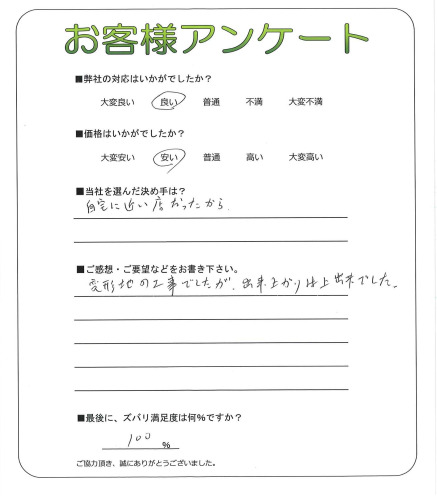 お客様アンケート
■弊社の対応はいかがでしたか？
大変良い 良い 普通 不満 大変不満
■価格はいかがでしたか？
大変安い 安い 普通 高い 大変高い
■当社を選んだ決め手は？
自宅に近い店だったから.
■ご感想・ご要望などをお書き下さい。
変形地の工事でしたが、出来上がりは上出来でした。
■最後に、ズバリ満足度は何%ですか？
100 %
ご協力頂き、誠にありがとうございました。